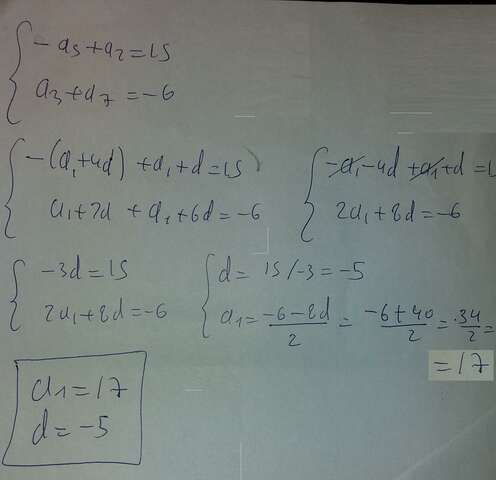 -a₅+a₂=15
a₃+a₇=-6
-(a₁+4d)+a₁+d=15
a₁+2d+a₁+6d=-6
-a₁-4d+a₁+d=1
2a₁+8d=-6
-3d=15
2a₁+8d=-6
d=15/-3=-5
a₁=\frac{-6-8d}{2}=\frac{-6+40}{2}=\frac{34}{2}=
=17
a₁=17
d=-5